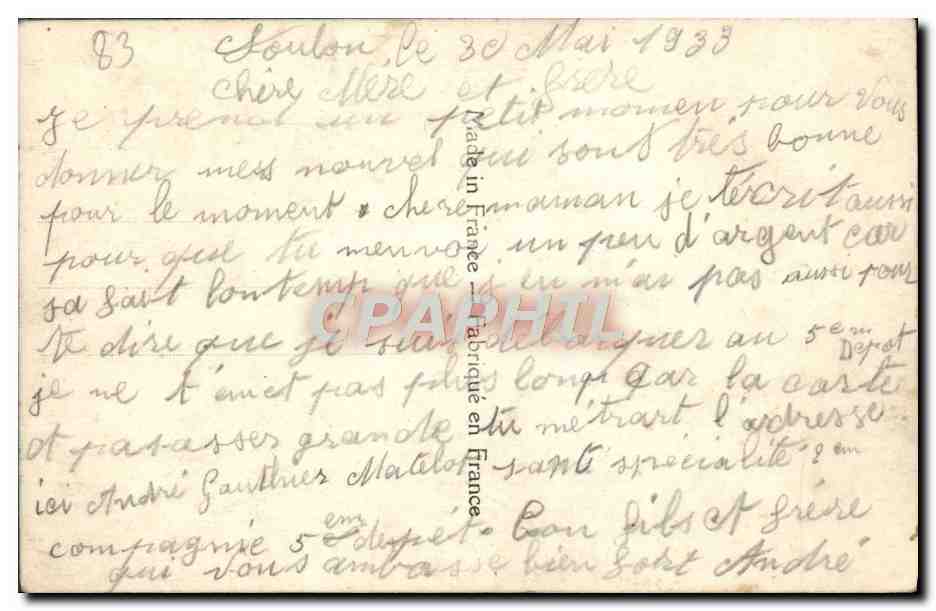 83 Toulon, le 30 Mai 1933
Chère Mère et frère
je prend un petit momen pour vous
donner mes nouvel qui sont très bonne
pour le moment. chere maman je técrit aussi
pour que tu menvoi un peu d'argent car
sa fait lontemp que j en m'ai pas aussi pour
te dire que je suis debarquer au 5 em Depot
je ne t'émet pas plus long car la carte
et pas asser grande tu métrart l'adresse
ici André Gauthier Matelot sant spécialité 2 em
compagnie 5 em depét. Ton fils et frére
qui vous ambrasse bien fort André
Made in France — Fabriqué en France
CPAPHIL